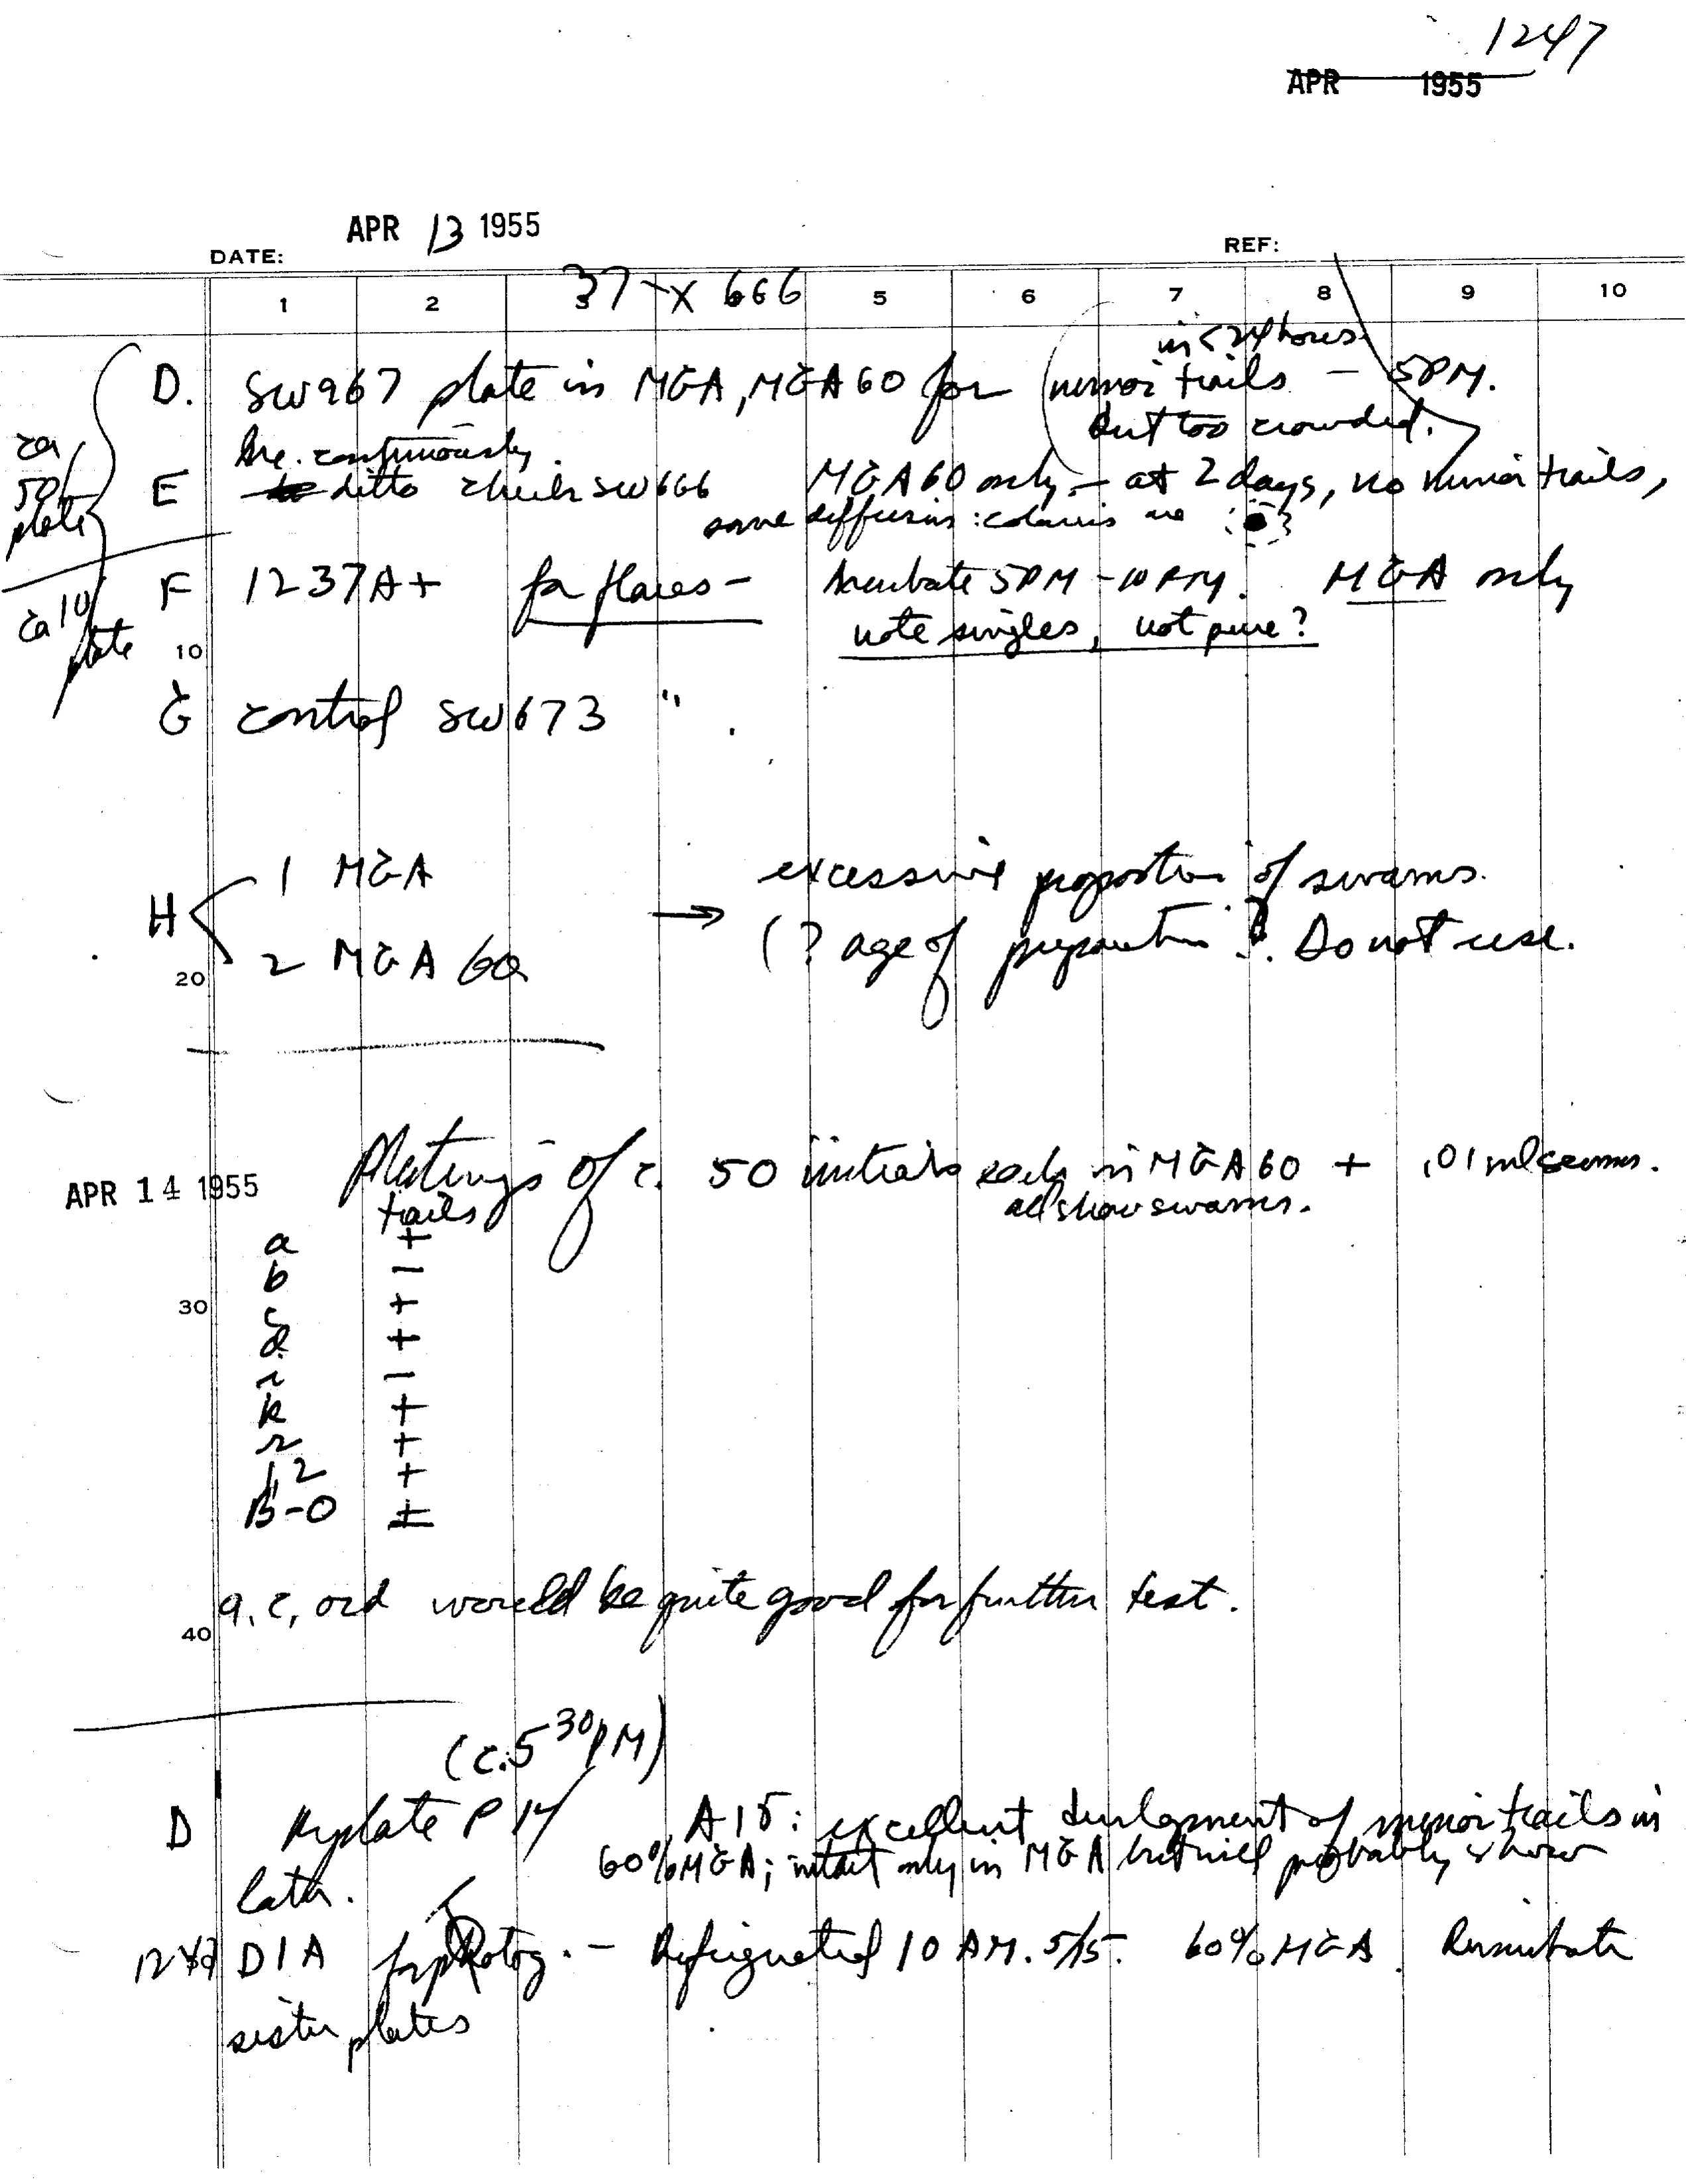 1247
APR 1955
APR 13 1955
DATE:
REF:
37 -x 666
1 2 3 5 6 7 8 9 10
in < 24 hours
D. SW967 plate in MGA, MGA 60 for minor trails - 5PM.
but too crowded.
Inc. continuously.
ca 50/ plate
E ditto check SW666 MGA60 only - at 2 days, no minor trails,
some diffusion: colonies are
F 1237A+ for flares - Incubate 5PM - 10PM. MGA only
ca 10/ plate
note singles, not pure?
10
G control SW673 "
H 1 MGA → excessive proportion of swarms.
2 MGA 60 (? age of preparation?). Do not use.
20
APR 14 1955 Platings of c. 50 initials each in MGA60 + .01 ml serum.
trails all show swarms.
a +
b -
30
c +
d +
i -
k +
r +
12 +
B-0 ±
a, c, or d would be quite good for further test.
40
(c. 5 30 PM)
D Replate P 14 A15: excellent development of minor trails in
60% MGA; only in MGA but will probably show
later.
D1A for photog. - Refrigerated 10 AM. 5/15. 60% MGA. Reincubate
sister plates